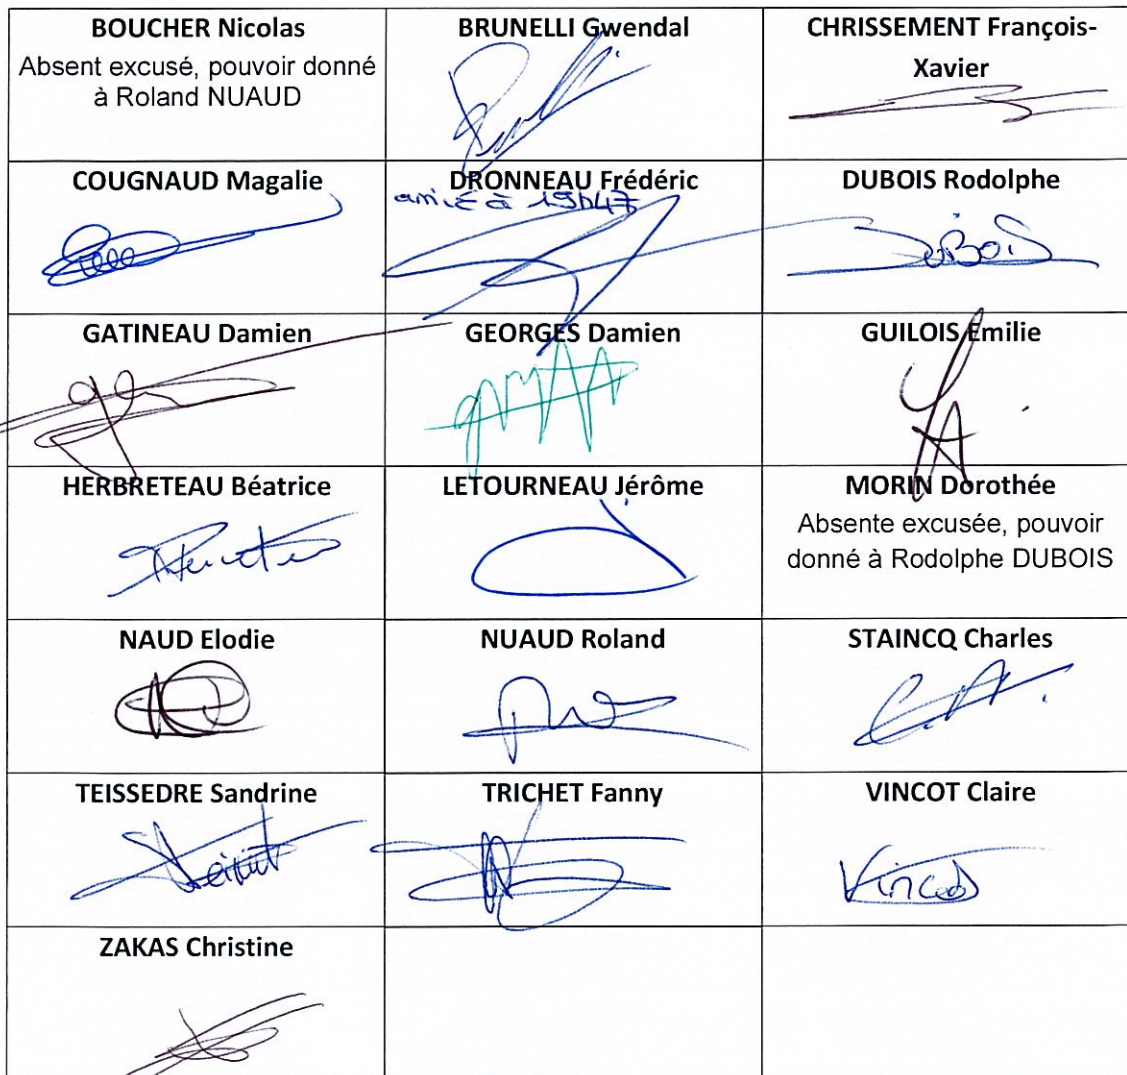 BOUCHER Nicolas
Absent excusé, pouvoir donné
à Roland NUAUD
BRUNELLI Gwendal
CHRISSEMENT François-
Xavier
COUGNAUD Magalie
DRONNEAU Frédéric
arrivé à 19h47
DUBOIS Rodolphe
DUBOIS
GATINEAU Damien
GEORGES Damien
GUILOIS Emilie
HERBRETEAU Béatrice
LETOURNEAU Jérôme
MORIN Dorothée
Absente excusée, pouvoir
donné à Rodolphe DUBOIS
NAUD Elodie
NUAUD Roland
STAINCQ Charles
TEISSEDRE Sandrine
TRICHET Fanny
VINCOT Claire
Vincot
ZAKAS Christine